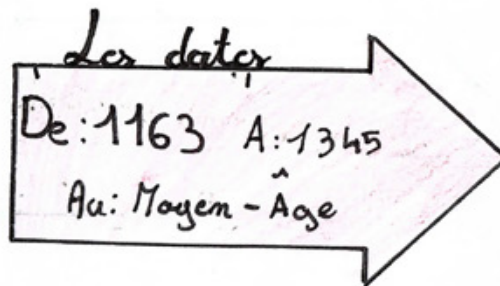 Les dates
De : 1163 A : 1345
Au : Moyen - Âge